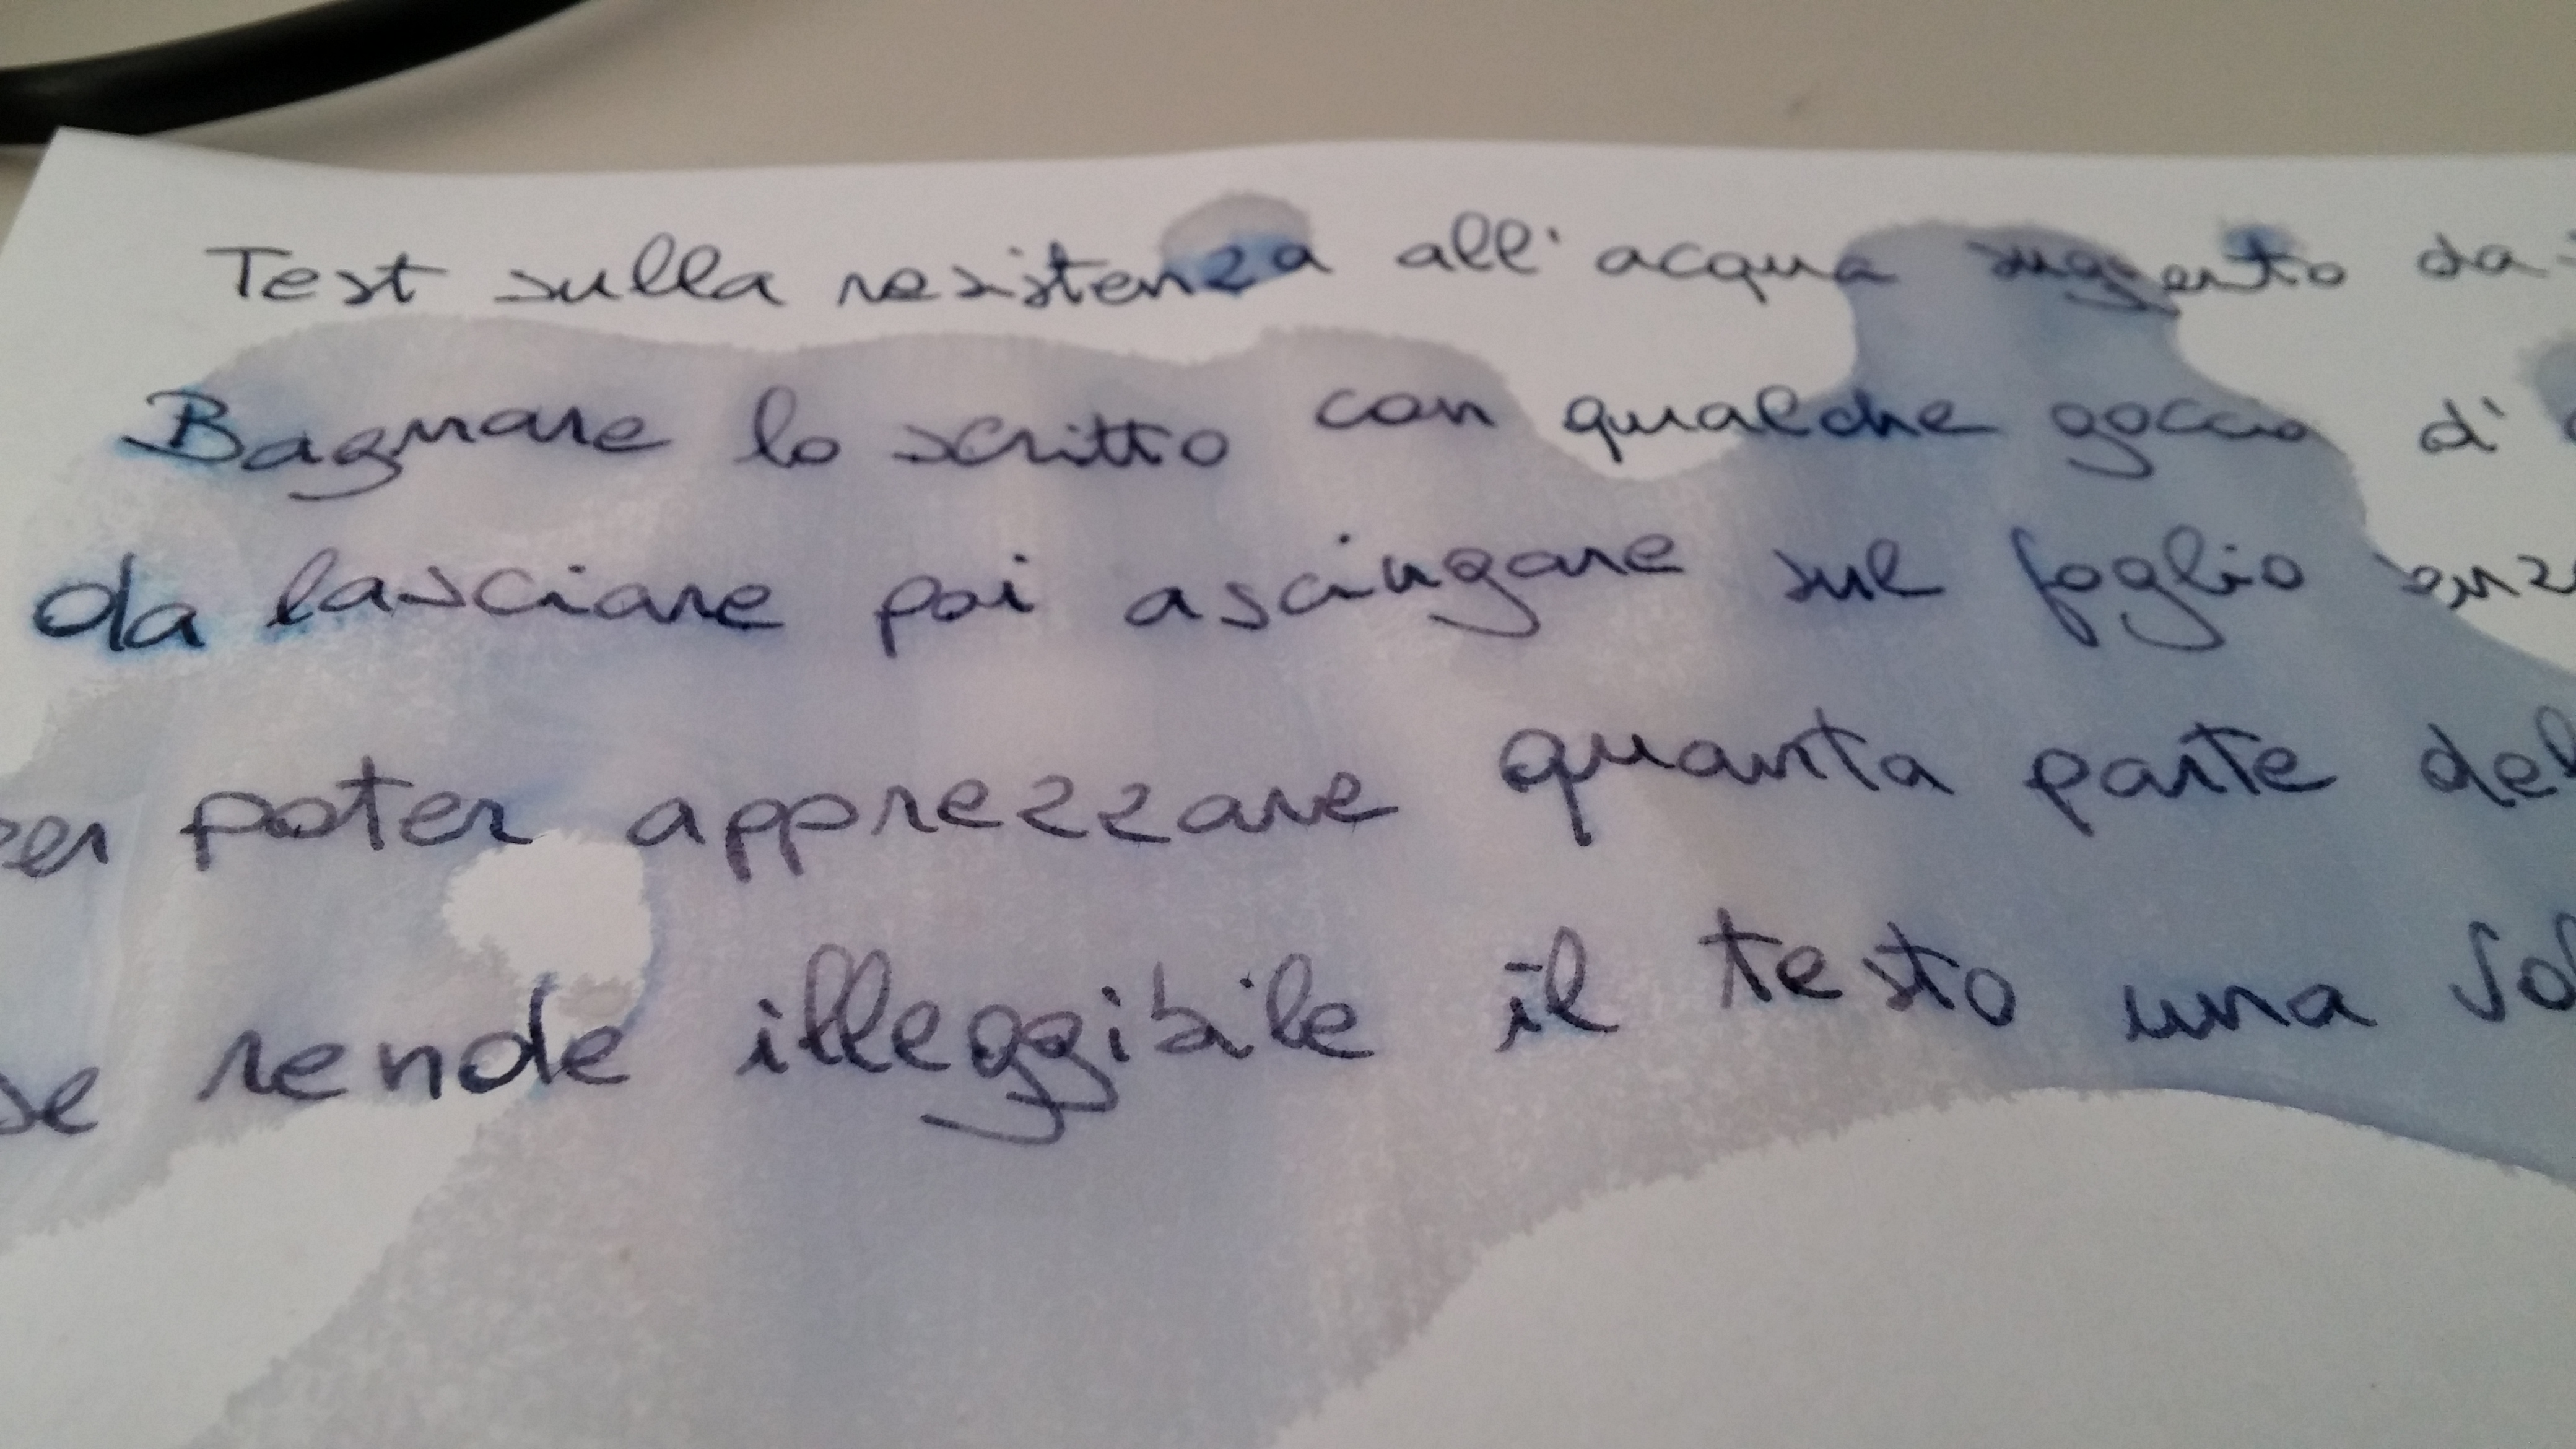 Test sulla resistenza all'acqua suggerito da
Bagnare lo scritto con qualche goccia d'
da lasciare poi asciugare sul foglio senz
per poter apprezzare quanta parte del
se rende illeggibile il testo una sol